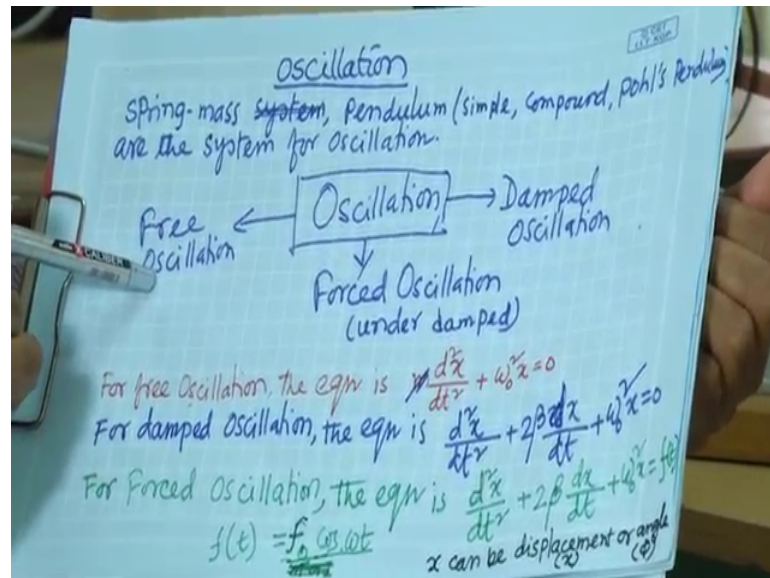 Oscillation
Spring-mass system, Pendulum (simple, compound, Pohl's Pendulum)
are the system for oscillation.
Free Oscillation
Oscillation
Damped Oscillation
Forced Oscillation
(under damped)
For free Oscillation, the eqn is d²x/dt² + ω₀²x = 0
For damped oscillation, the eqn is d²x/dt² + 2β dx/dt + ω₀²x = 0
For Forced Oscillation, the eqn is d²x/dt² + 2β dx/dt + ω₀²x = f(t)
f(t) = f₀ cos ωt
x can be displacement or angle
(x) (φ)
CALIBER